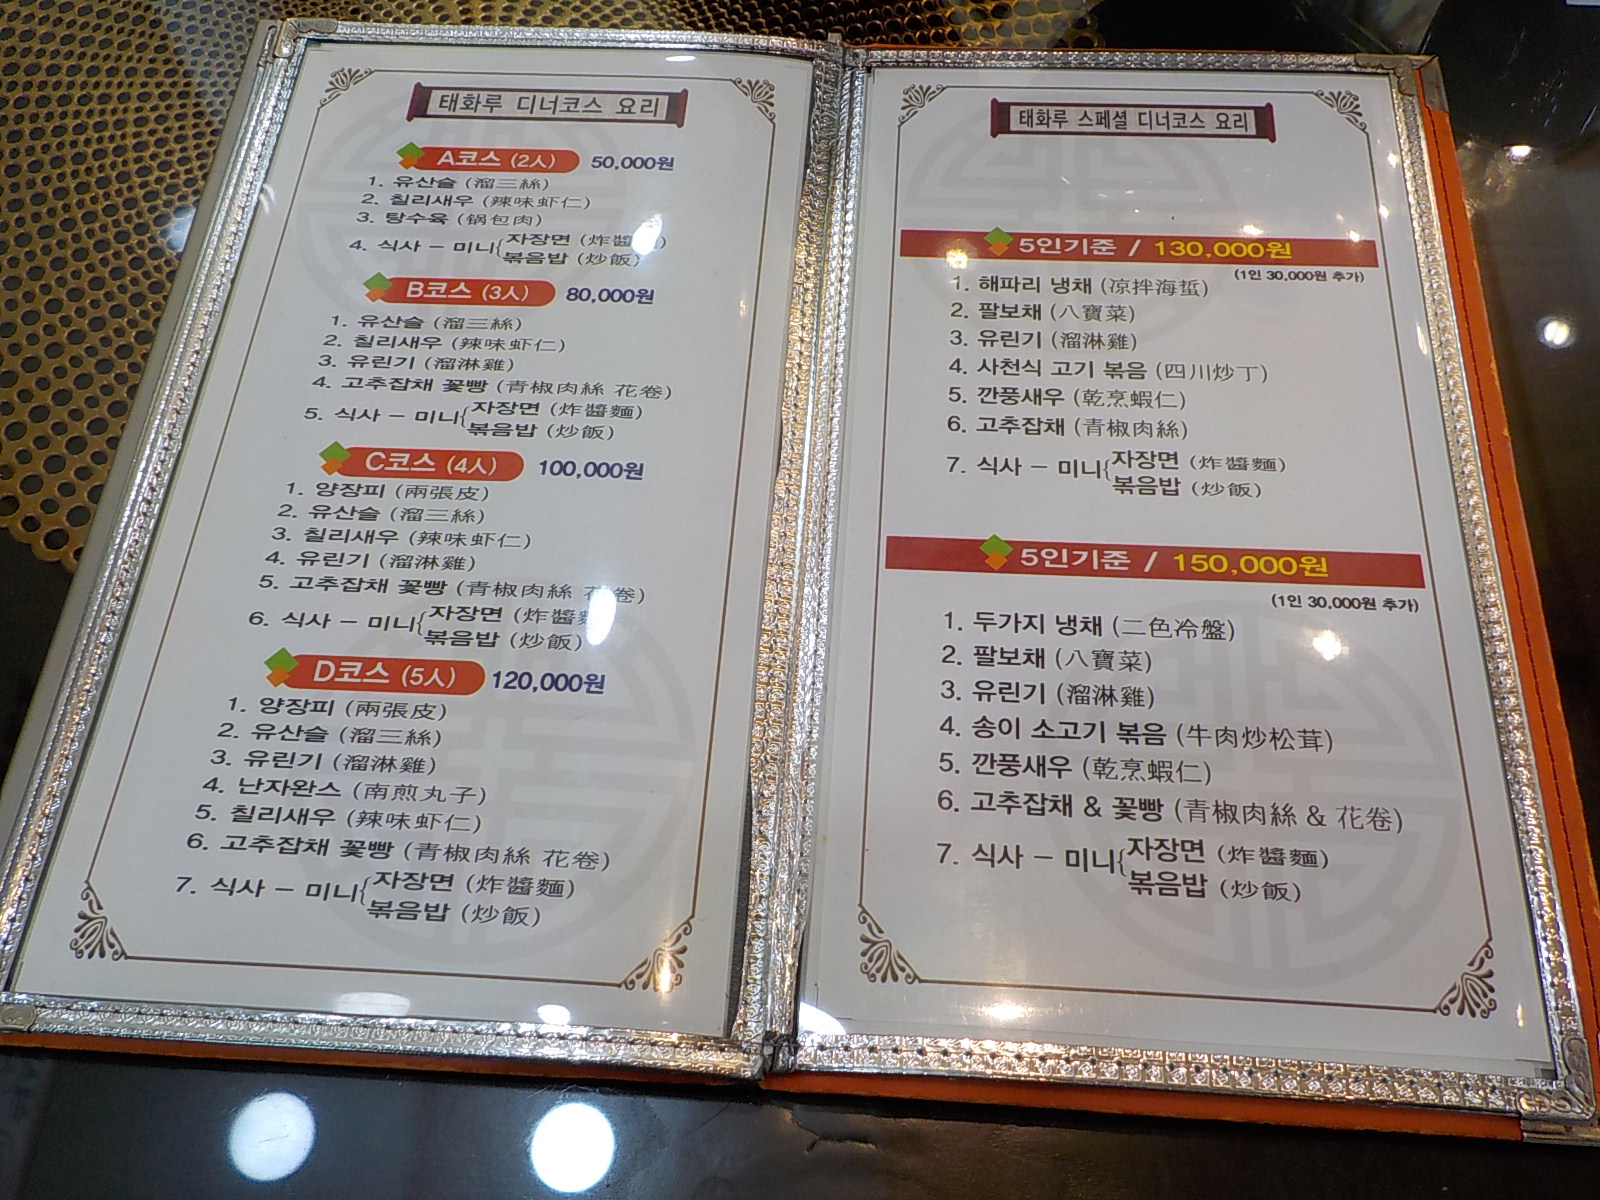 태화루 디너코스 요리
A코스 (2人) 50,000원
1. 유산슬 (溜三絲)
2. 칠리새우 (辣味虾仁)
3. 탕수육 (锅包肉)
4. 식사 - 미니{자장면 (炸醬
볶음밥 (炒飯)
B코스 (3人) 80,000원
1. 유산슬 (溜三絲)
2. 칠리새우 (辣味虾仁)
3. 유린기 (溜淋雞)
4. 고추잡채 꽃빵 (青椒肉絲 花卷)
5. 식사 - 미니{자장면 (炸醬麵)
볶음밥 (炒飯)
C코스 (4人) 100,000원
1. 양장피 (兩張皮)
2. 유산슬 (溜三絲)
3. 칠리새우 (辣味虾仁)
4. 유린기 (溜淋雞)
5. 고추잡채 꽃빵 (青椒肉絲 花卷)
6. 식사 - 미니{자장면 (炸醬
볶음밥 (炒飯)
D코스 (5人) 120,000원
1. 양장피 (兩張皮)
2. 유산슬 (溜三絲)
3. 유린기 (溜淋雞)
4. 난자완스 (南煎丸子)
5. 칠리새우 (辣味虾仁)
6. 고추잡채 꽃빵 (青椒肉絲 花卷)
7. 식사 - 미니{자장면 (炸醬麵)
볶음밥 (炒飯)
태화루 스페셜 디너코스 요리
5인기준 / 130,000원
(1인 30,000원 추가)
1. 해파리 냉채 (凉拌海蜇)
2. 팔보채 (八寶菜)
3. 유린기 (溜淋雞)
4. 사천식 고기 볶음 (四川炒丁)
5. 깐풍새우 (乾烹蝦仁)
6. 고추잡채 (青椒肉絲)
7. 식사 - 미니{자장면 (炸醬麵)
볶음밥 (炒飯)
5인기준 / 150,000원
(1인 30,000원 추가)
1. 두가지 냉채 (二色冷盤)
2. 팔보채 (八寶菜)
3. 유린기 (溜淋雞)
4. 송이 소고기 볶음 (牛肉炒松茸)
5. 깐풍새우 (乾烹蝦仁)
6. 고추잡채 & 꽃빵 (青椒肉絲 & 花卷)
7. 식사 - 미니{자장면 (炸醬麵)
볶음밥 (炒飯)